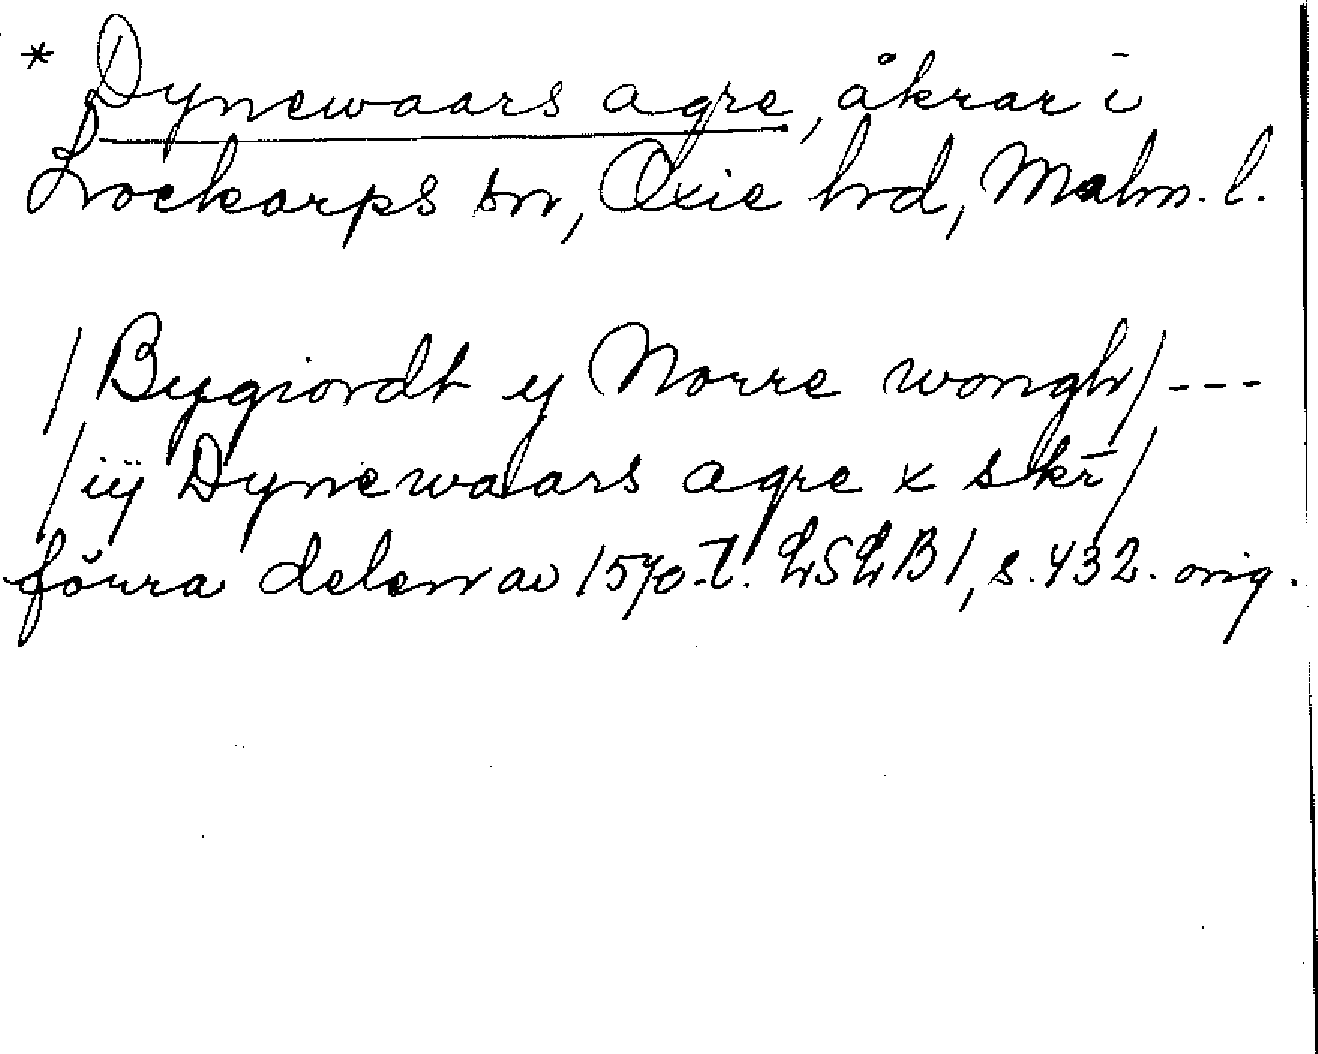 * Dynewaars agre, åkrar i
Lockarps sn, Oxie hd, Malm. l.
/ Bygiordt y Norre wongh / ---
/ iij Dynewaars agre x skr̄ /
förra delen av 1570-t. LSLB 1, s. 432. orig.